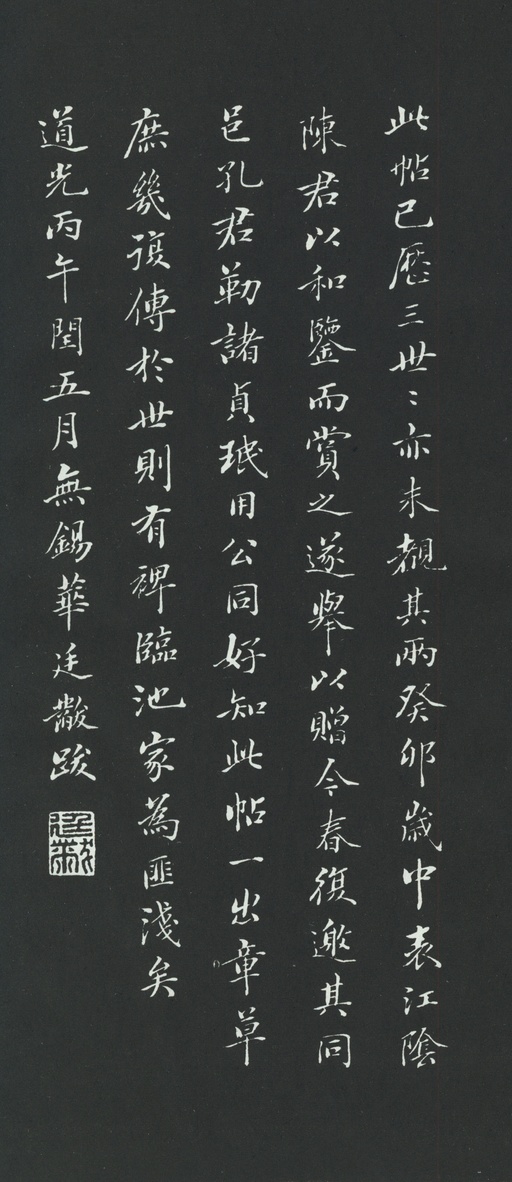 此帖已歷三世〻亦未覩其兩癸卯歲中表江陰
陳君以和鑒而賞之遂舉以贈今春復邀其同
邑孔君勒諸貞珉用公同好知此帖一出章草
庶幾復傳於世則有碑臨池家為匪淺矣
道光丙午閏五月無錫華廷黻跋
廷黻